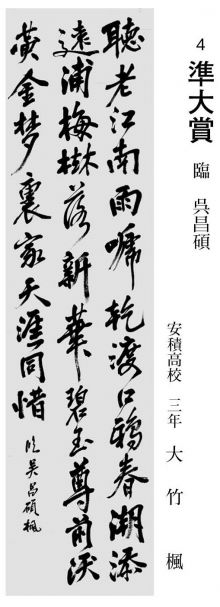 4 準大賞 臨 呉昌碩
安積高校 三年 大竹 楓
聽老江南雨啼乾渡口鴉春潮添
遠浦梅樹落新華碧玉尊前
黄金夢裏家天涯同惜 臨吴昌碩 楓